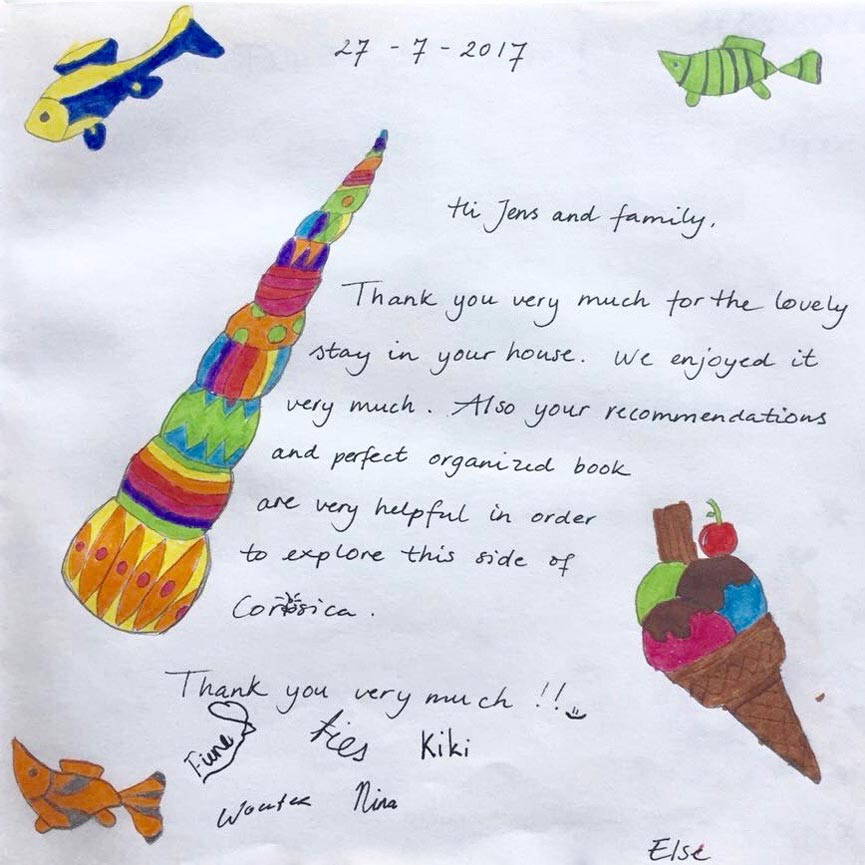 27 - 7 - 2017
Hi Jens and family,
Thank you very much for the lovely
stay in your house. We enjoyed it
very much. Also your recommendations
and perfect organized book
are very helpful in order
to explore this side of
Corsica.
Thank you very much !!
Ties Kiki
Wouter Nina
Else